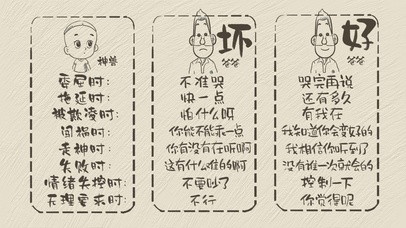 神兽
委屈时:
拖延时:
被欺凌时:
闯祸时:
走神时:
失败时:
情绪失控时:
无理要求时:
坏
爸爸
不准哭
快一点
怕什么呀
你能不能乖一点
你有没有在听啊
这有什么难的啊
不要吵了
不行
好
爸爸
哭完再说
还有多久
有我在
我知道你会变好的
我相信你听到了
没有谁一次就会的
控制一下
你觉得呢